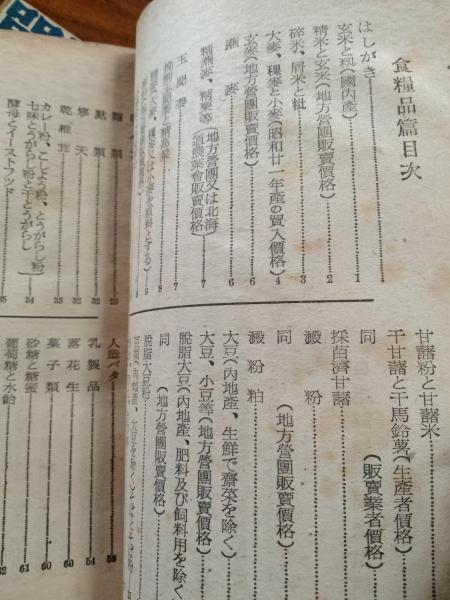 食糧品篇目次
はしがき
玄米と籾(國内産) 1
精米と玄米(地方營團販賣價格) 2
碎米、屑米と粃 3
大麥、稞麥と小麥(昭和廿一年產の買入價格) 4
玄麥(地方營團販賣價格) 6
燕麥 6
精燕麥、精粟等(地方營團又は北海道農業會販賣價格) 7
玉蜀黍 7
甘藷粉と甘藷米
干甘藷と干馬鈴薯(生產者價格)
同(販賣業者價格)
採苗濟甘藷
澱粉
同(地方營團販賣價格)
澱粉粕
大豆(内地產、生鮮で齋菜を除く)
大豆、小豆等(地方營團販賣價格)
脫脂大豆(内地產、肥料及び飼料用を除く)
同(地方營團販賣價格)
脫脂大豆粉
麵類
麩類 32
寒天 32
乾椎茸 33
カレー粉、こしょう粉、とうがらし粉
七味とうがらし粉と干とうがらし 34
酵母とイーストフッド 35
人造バター
乳製品 54
落花生 60
菓子類 60
砂糖と糖蜜 61
葡萄糖と水飴 62